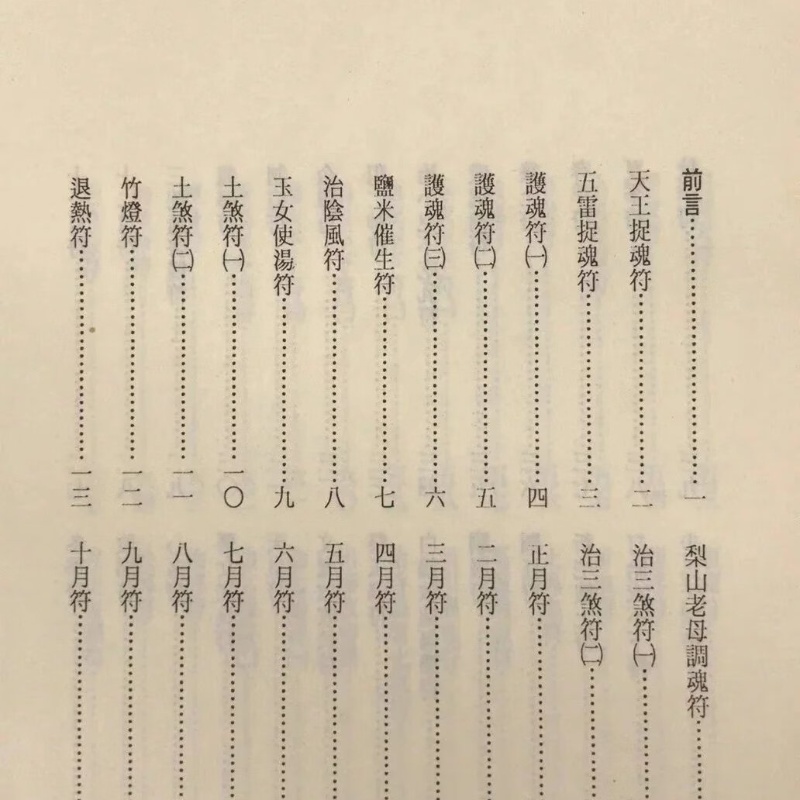 前言⋯⋯⋯⋯⋯⋯⋯⋯一
天王捉魂符⋯⋯⋯⋯⋯⋯二
五雷捉魂符⋯⋯⋯⋯⋯⋯三
護魂符㈠⋯⋯⋯⋯⋯⋯四
護魂符㈡⋯⋯⋯⋯⋯⋯五
護魂符㈢⋯⋯⋯⋯⋯⋯六
鹽米催生符⋯⋯⋯⋯⋯⋯七
治陰風符⋯⋯⋯⋯⋯⋯八
玉女使湯符⋯⋯⋯⋯⋯⋯九
土煞符㈠⋯⋯⋯⋯⋯⋯一〇
土煞符㈡⋯⋯⋯⋯⋯⋯一一
竹燈符⋯⋯⋯⋯⋯⋯一二
退熱符⋯⋯⋯⋯⋯⋯一三
梨山老母調魂符⋯⋯
治三煞符㈠⋯⋯
治三煞符㈡⋯⋯
正月符⋯⋯⋯
二月符⋯⋯⋯
三月符⋯⋯⋯
四月符⋯⋯⋯
五月符⋯⋯⋯
六月符⋯⋯⋯
七月符⋯⋯⋯
八月符⋯⋯⋯
九月符⋯⋯⋯
十月符⋯⋯⋯